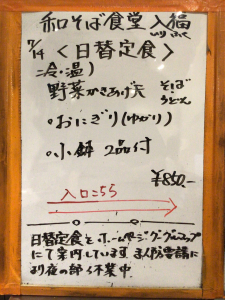 和そば食堂 入福
いりふく
7/14 <日替定食>
(冷・温)
野菜かきあげ天 そば
うどん
・おにぎり(ゆかり)
・小鉢 2品付
¥850-
入口ここ
日替定食を、ホームページ・グーグルマップ
にて案内しています。まん防要請に
より夜の部は休業中